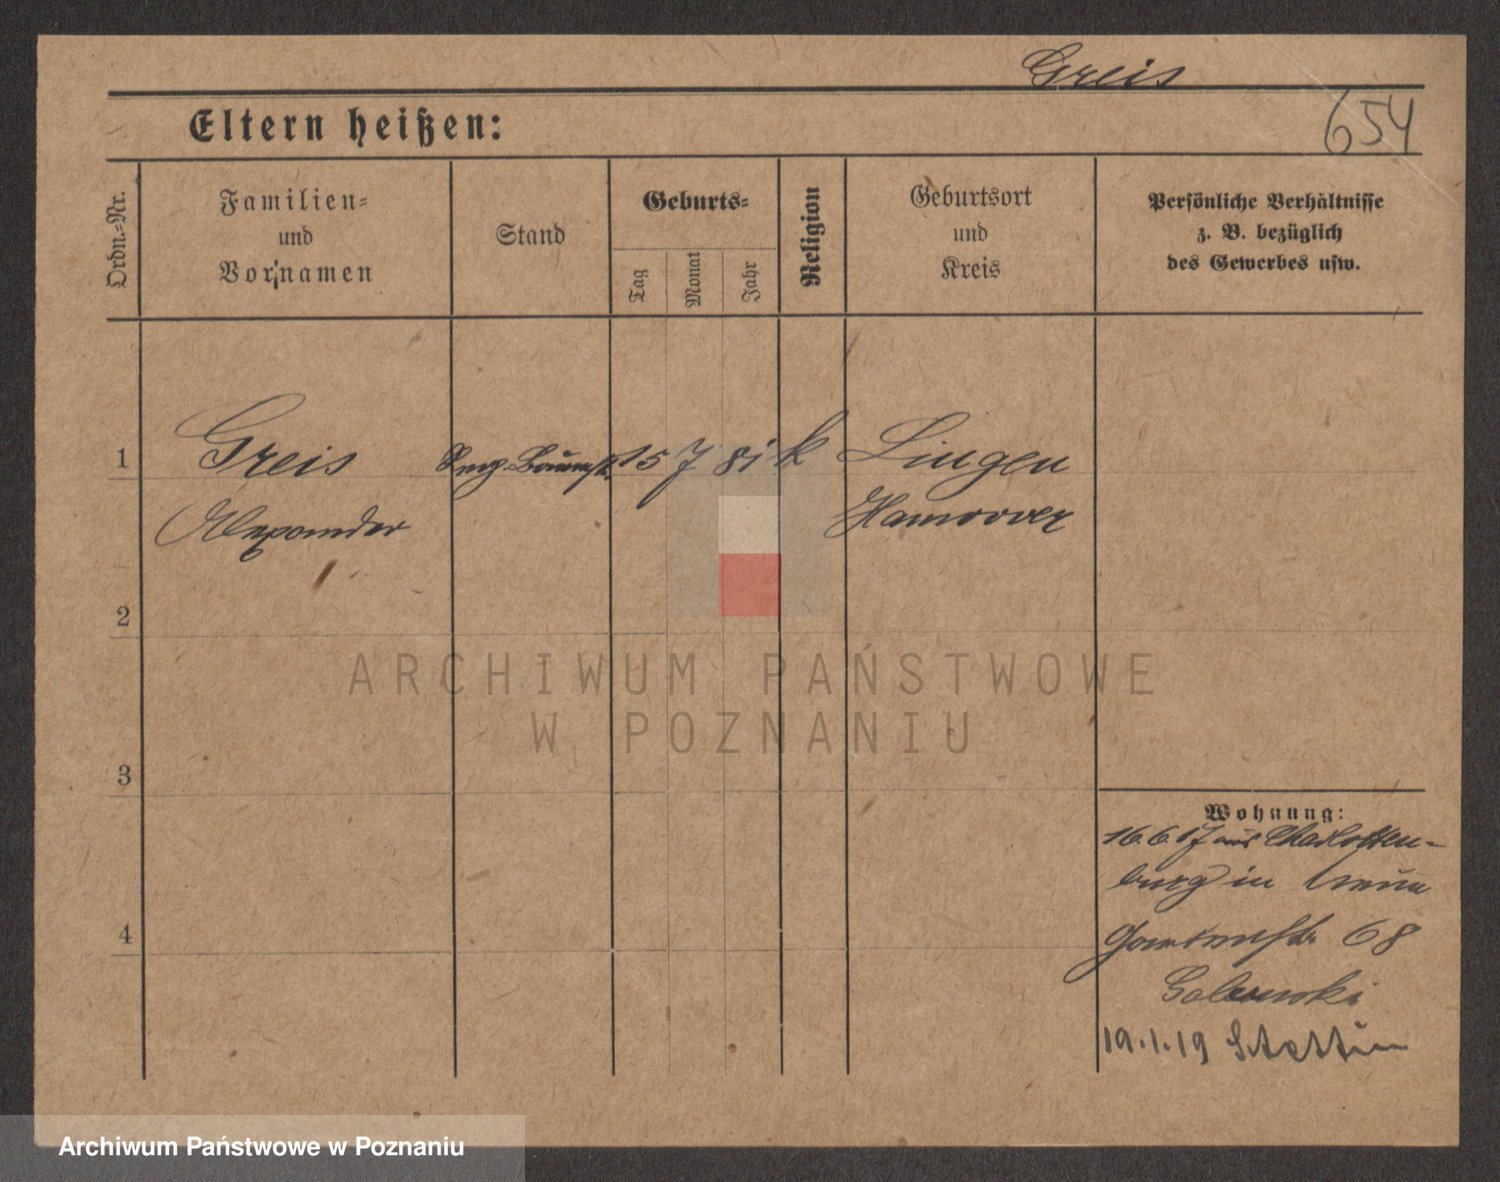 Greis
654
Eltern heißen:
Ordn.=Nr.
Familien=
und
Vornamen
Stand
Geburts=
Tag
Monat
Jahr
Religion
Geburtsort
und
Kreis
Persönliche Verhältnisse
z. B. bezüglich
des Gewerbes usw.
1
Greis
15 7 81 k
Lingen
Alexander
Hannover
2
ARCHIWUM PAŃSTWOWE
W POZNANIU
3
Wohnung:
16.6.17 aus Charlotten-
burg in
4
Gartenstr. 68
19.1.19 Stettin
Archiwum Państwowe w Poznaniu